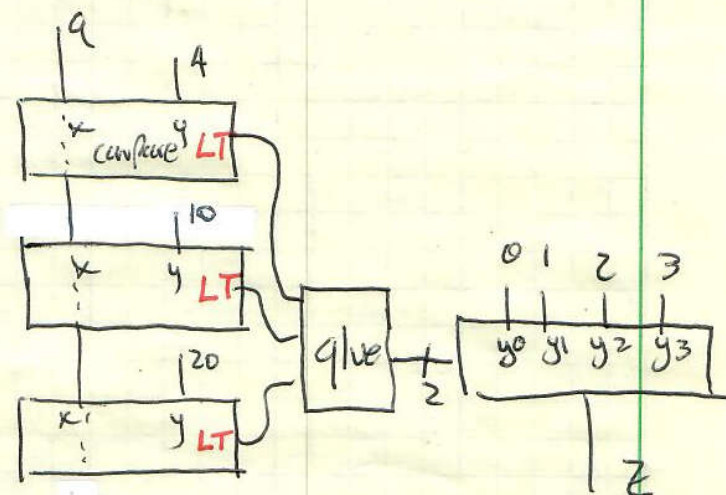 a
4
x compare y LT
10
x y LT
20
x y LT
glue
2
0 1 2 3
y0 y1 y2 y3
Z